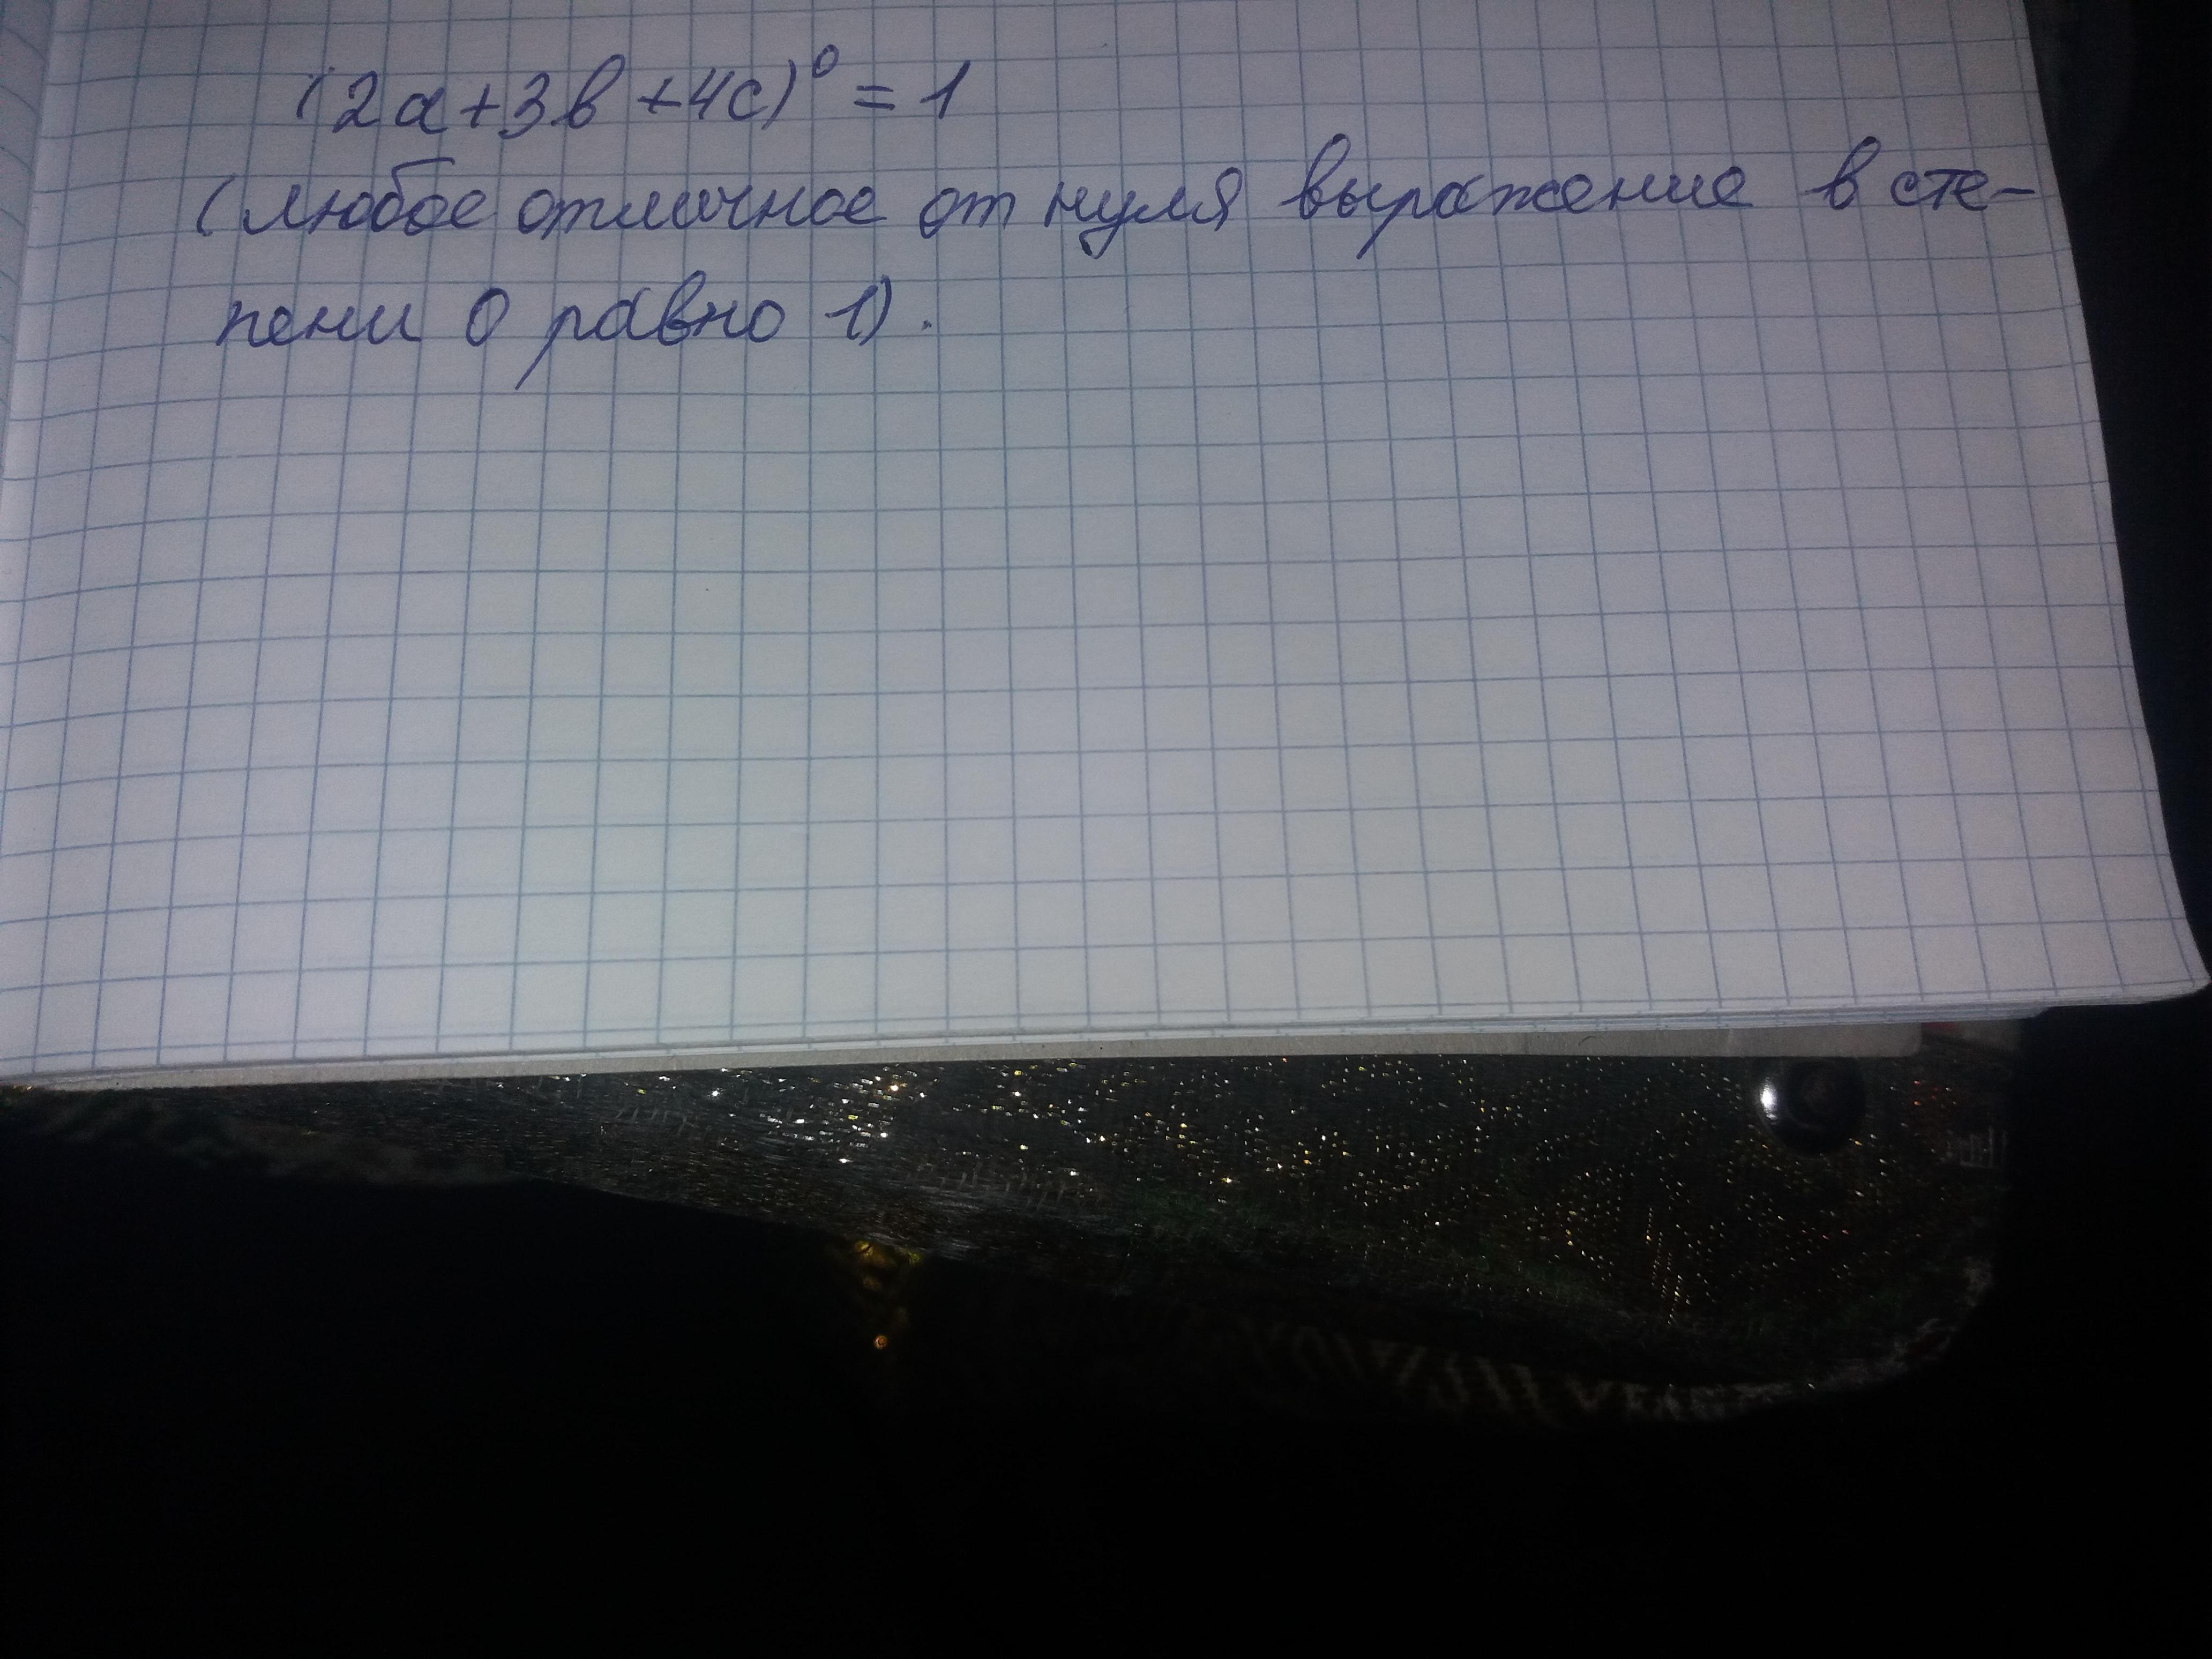 (2a+3b+4c)⁰ = 1
(любое отличное от нуля выражение в сте-
пени 0 равно 1).